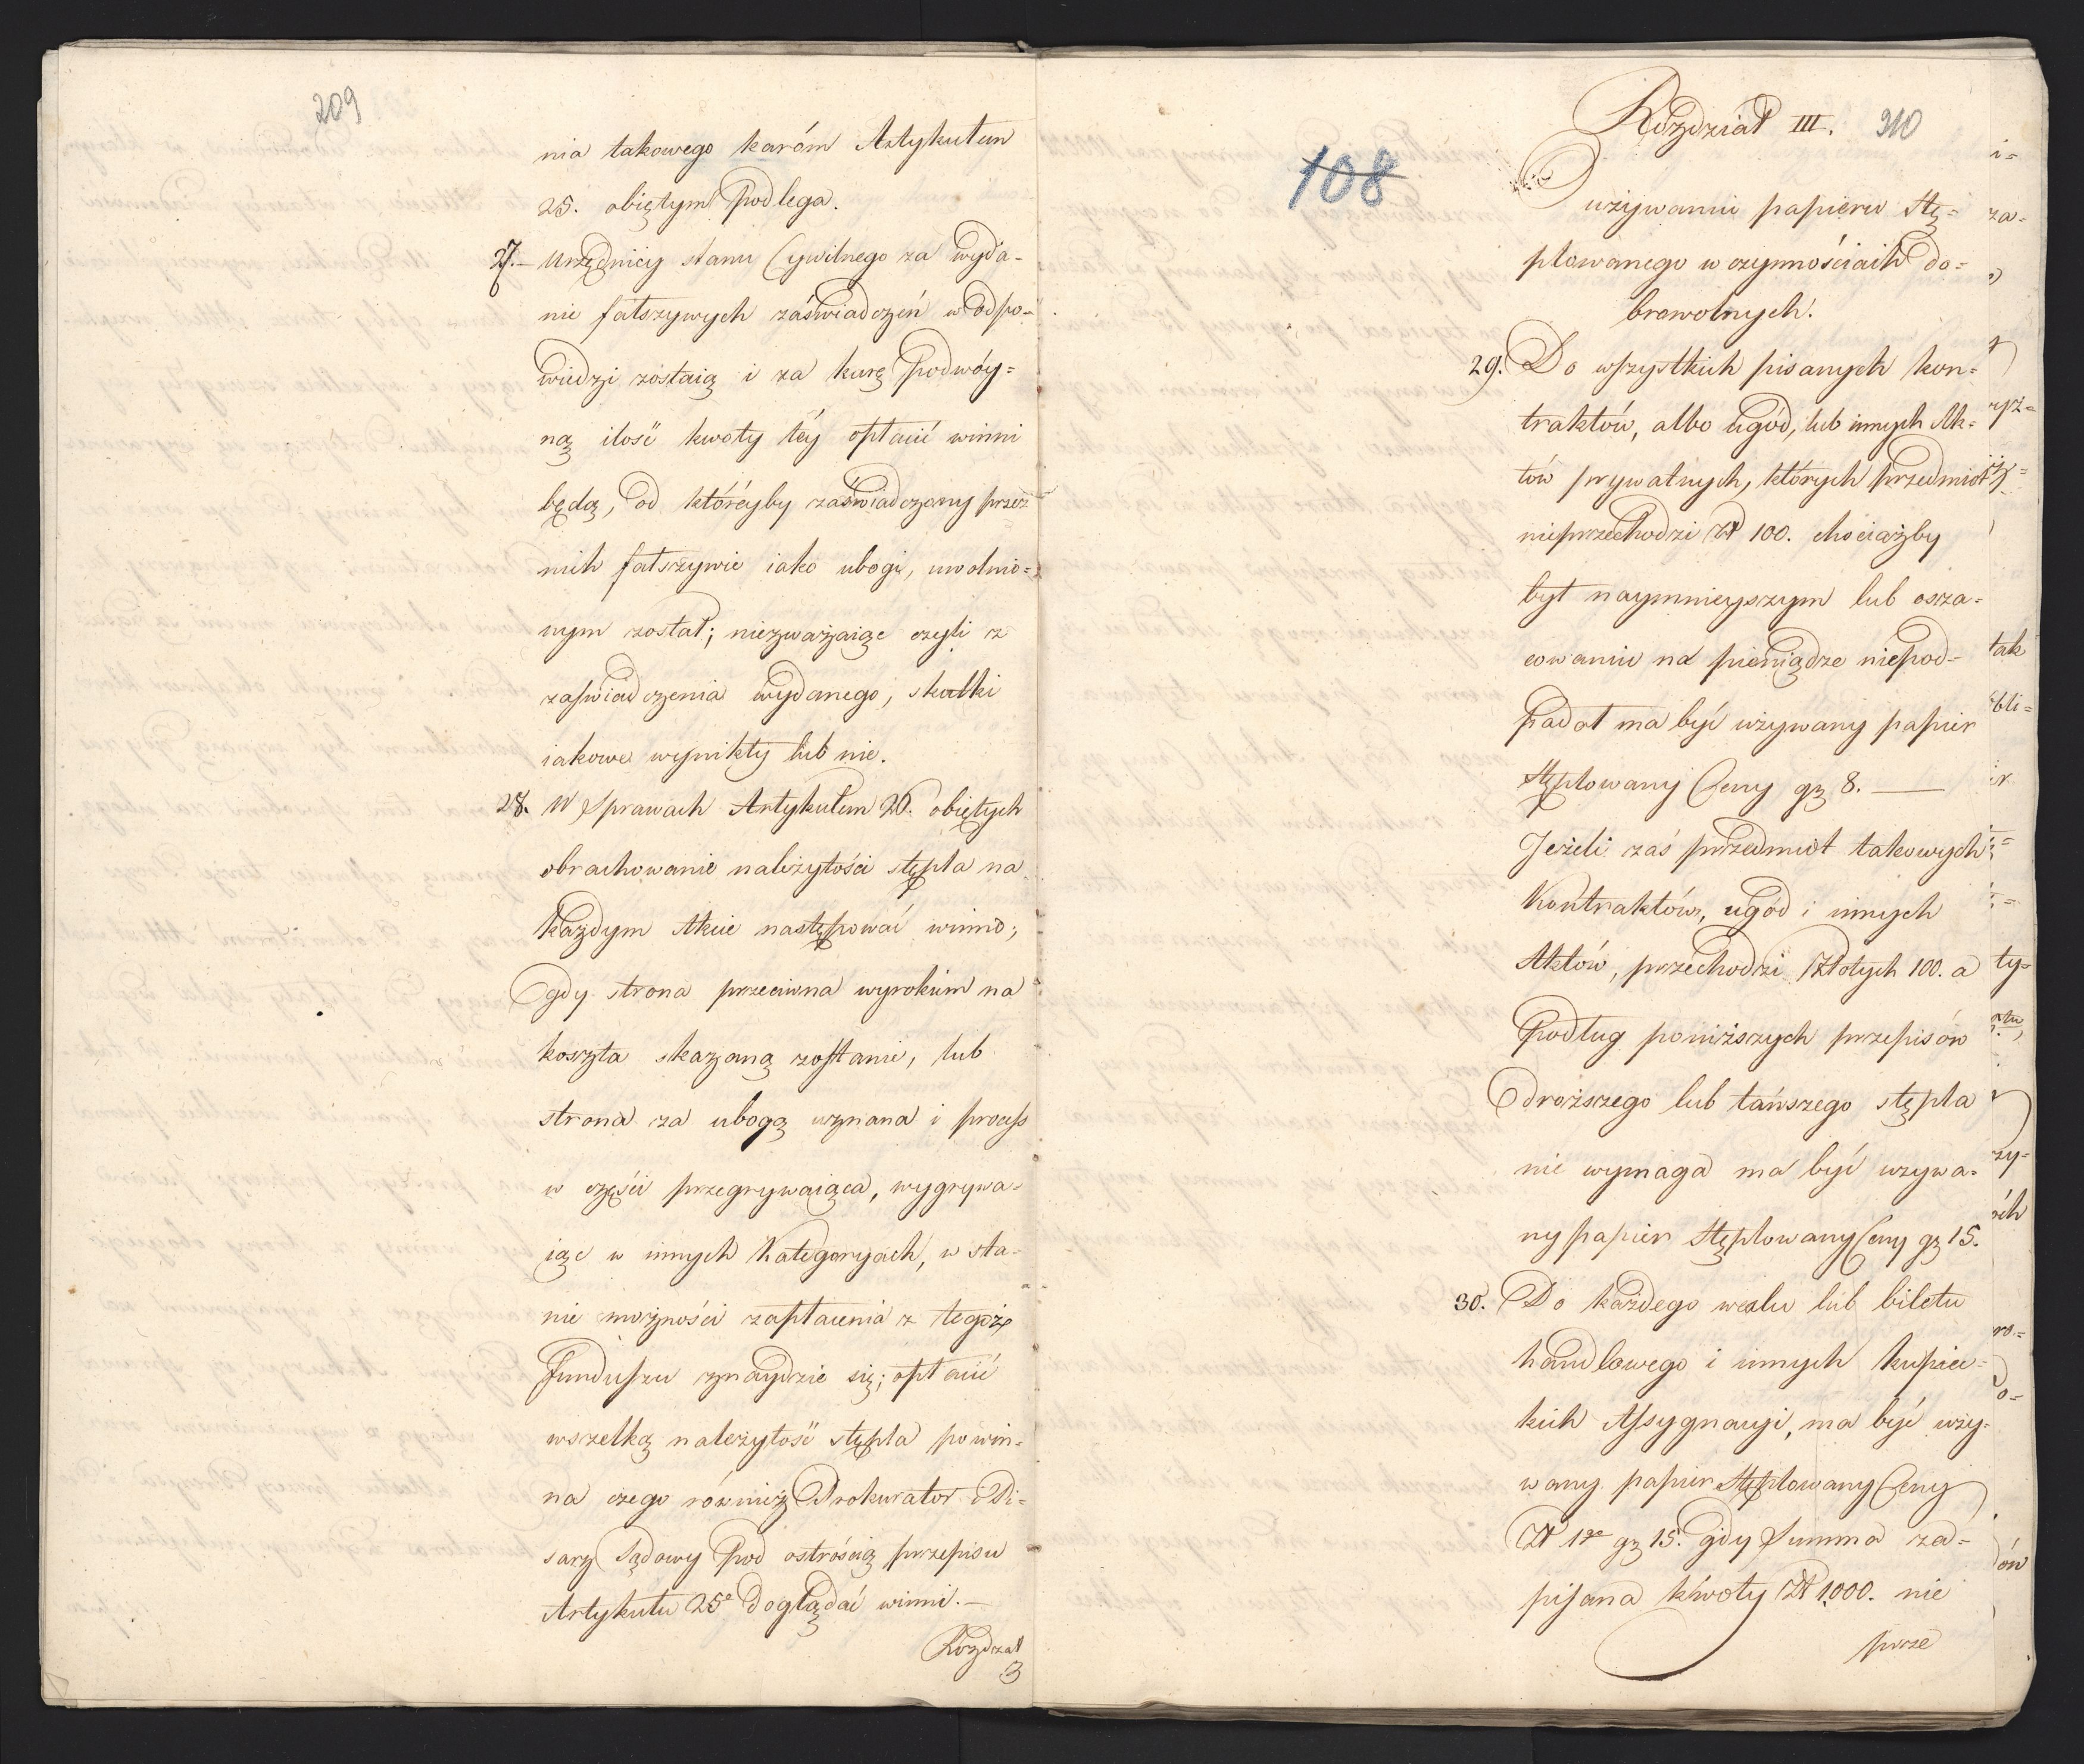 209
nia takowego karóm Artykułem
25. obiętym podlega.
27. – Urzędnicy stanu Cywilnego za wyda-
nie fałszywych záświadczeń w odpo-
wiedzi zostaią i za karę podwóy=
ną ilość kwoty téy opłacić winni
będą, od któréyby zaświadczony przez
nich fałszywie iako ubogi, uwolnio=
nym został; niezważaiąc czyli z
zaświadczenia wydanego, skutki
iakowe wynikły lub nie.
28. W Sprawach Artykułem 26. obiętych
obrachowanie należytości stępla na
każdym Akcie następować winno;
gdy strona przeciwna wyrokiem na
koszta skazaną zostanie, lub
strona za ubogą uznana i process
w części przegrywaiąca, wygrywa-
iąc w innych Kategoryach, w sta-
nie możności zapłacenia z tegoż
funduszu znaydzie się; opłacić
wszelką należytość stępla powin-
na czego również Prokurator i Pi-
sarz Sądowy pod ostrością przepisu
Artykułu 25º doglądać winni. –
Rozdział
3
108
Rozdział III. 210
O używaniu papieru stę=
plowanego w czynnościach do=
browolnych.
29. Do wszystkich pisanych kon=
traktów, albo ugód, lub innych Ak=
tów prywatnych, których przedmiot
nieprzechodzi Zł 100. chociażby
był naymnieyszym lub osza-
cowaniu na pieniądze niepod=
padał ma być używany papier
stęplowany Ceny gr 8. —
Jeżeli zaś przedmiot takowych
Kontraktów, ugód i innych
Aktów, przechodzi Złotych 100. a
podług poniższych przepisów
droższego lub tańszego stępla
nie wymaga ma być używa-
ny papier stęplowany Ceny gr 15.
30. Do każdego wexlu lub biletu
handlowego i innych kupiec-
kich Assygnacyi, ma być uży-
wany papier stęplowany Ceny
Zł 1go gr 15. gdy Summa za=
pisana kwoty Zł 1000. nie
prze